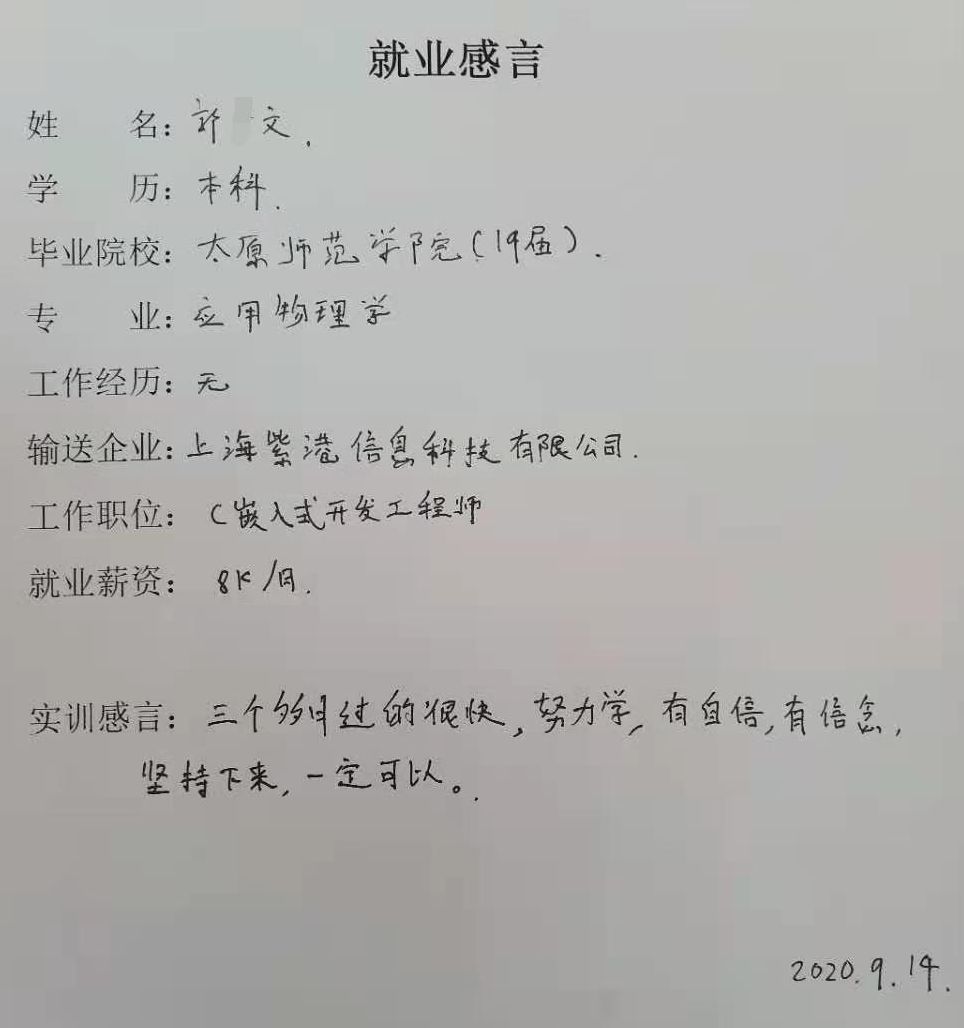 就业感言
姓 名：郭 文.
学 历：本科.
毕业院校：太原师范学院(19届).
专 业：应用物理学
工作经历：无
输送企业：上海紫港信息科技有限公司.
工作职位：C嵌入式开发工程师
就业薪资：8K/月.
实训感言：三个多月过的很快,努力学,有自信,有信念,
坚持下来,一定可以。.
2020.9.14.